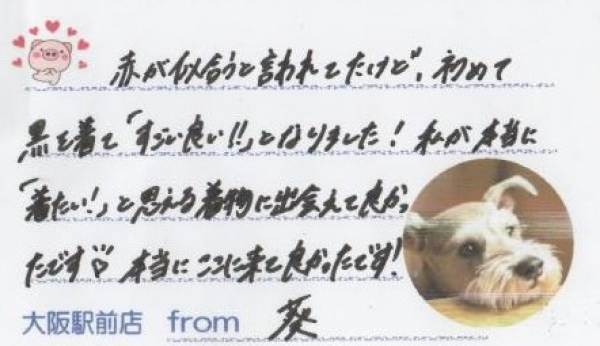 赤が似合うと言われてたけど、初めて
黒を着て「すごい良い!!」となりました!私が本当に
「着たい!」と思える着物に出会えて良かっ
たです♡ 本当にここに来て良かったです!
大阪駅前店 from 葵